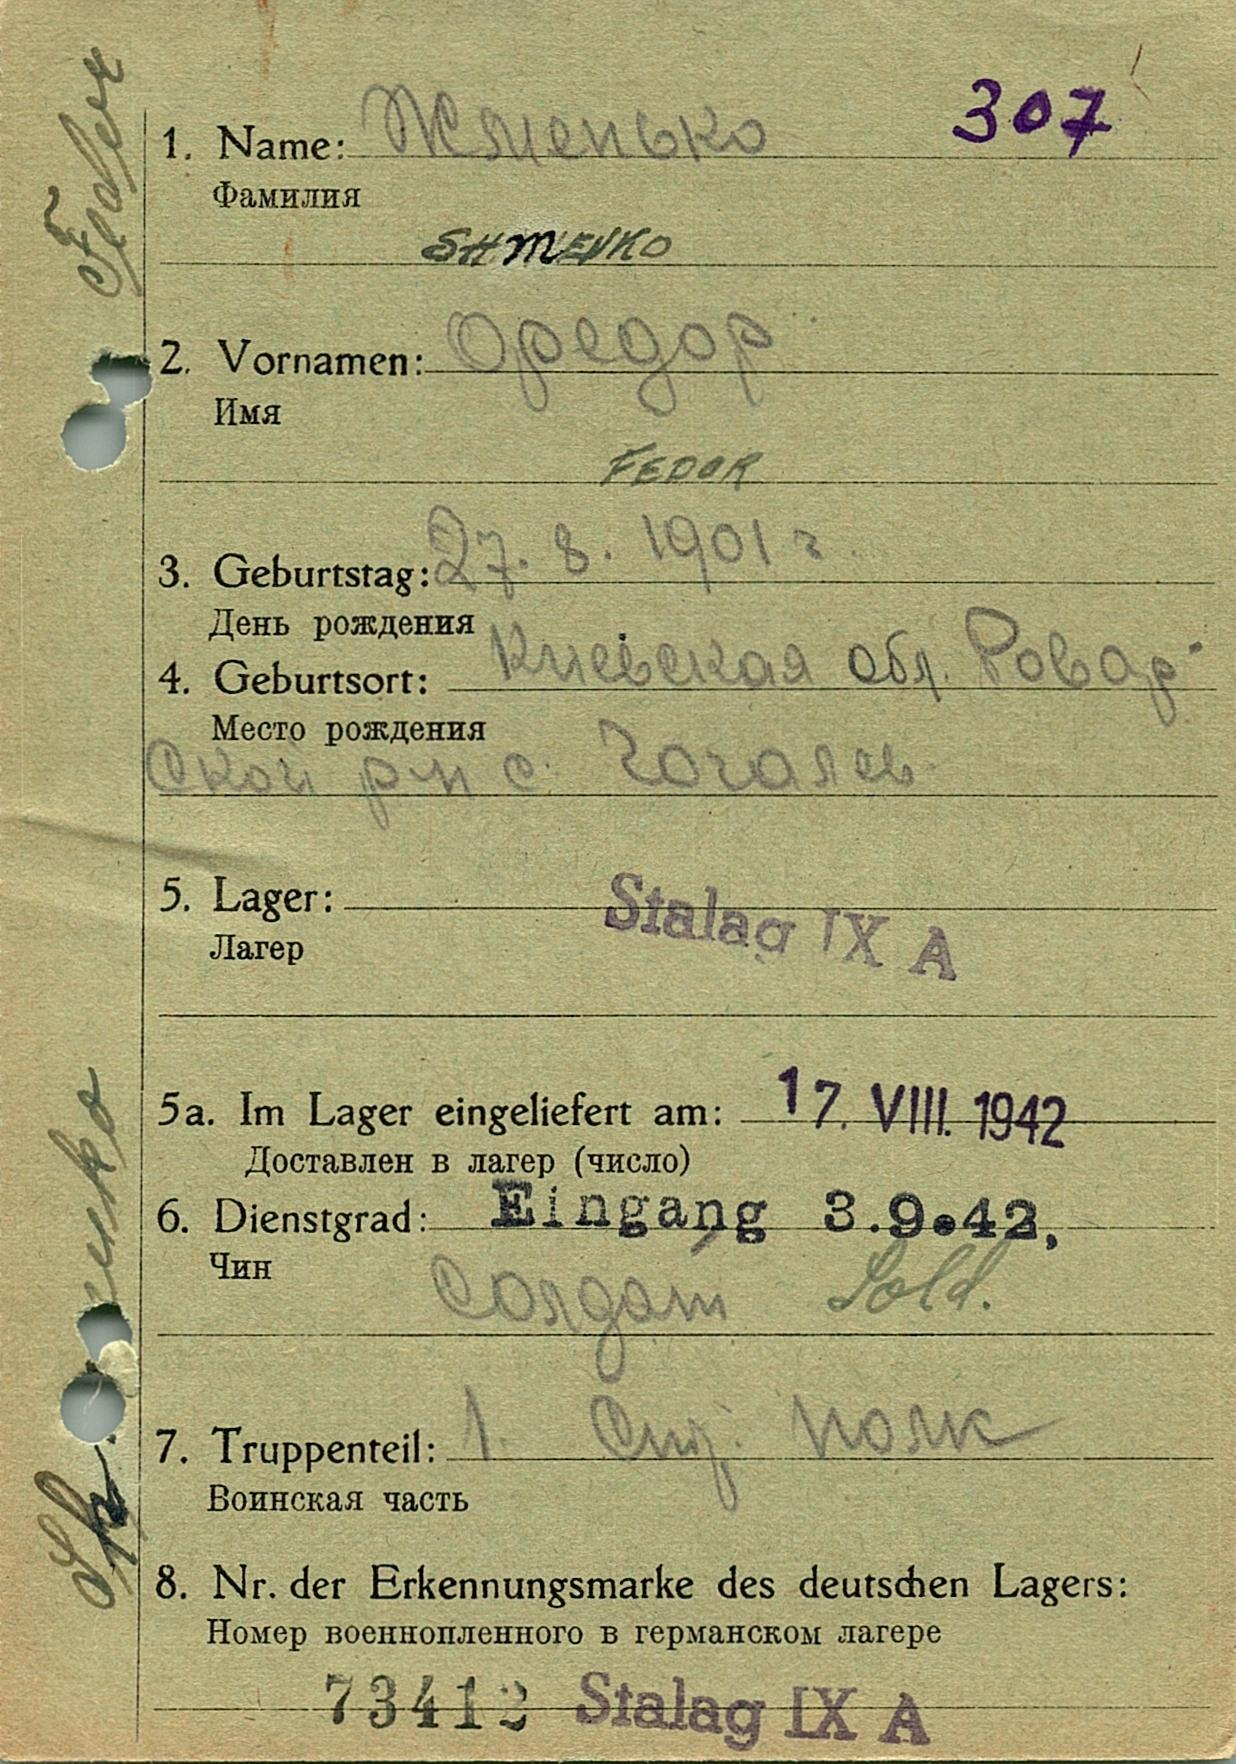 307
1. Name: Жменько
Фамилия
SHMENKO
2. Vornamen: Фредор
Имя
FEDOR
3. Geburtstag: 27. 8. 1901 г.
День рождения
4. Geburtsort: Киевская обл. Ровар-
Место рождения
ской р-н с. Гоголев
5. Lager: Stalag IX A
Лагер
5a. Im Lager eingeliefert am: 17. VIII. 1942
Доставлен в лагер (число)
6. Dienstgrad: Eingang 3.9.42,
Чин
Солдат Sold.
7. Truppenteil: 1. полк
Воинская часть
8. Nr. der Erkennungsmarke des deutschen Lagers:
Номер военнопленного в германском лагере
73412 Stalag IX A
Fedor